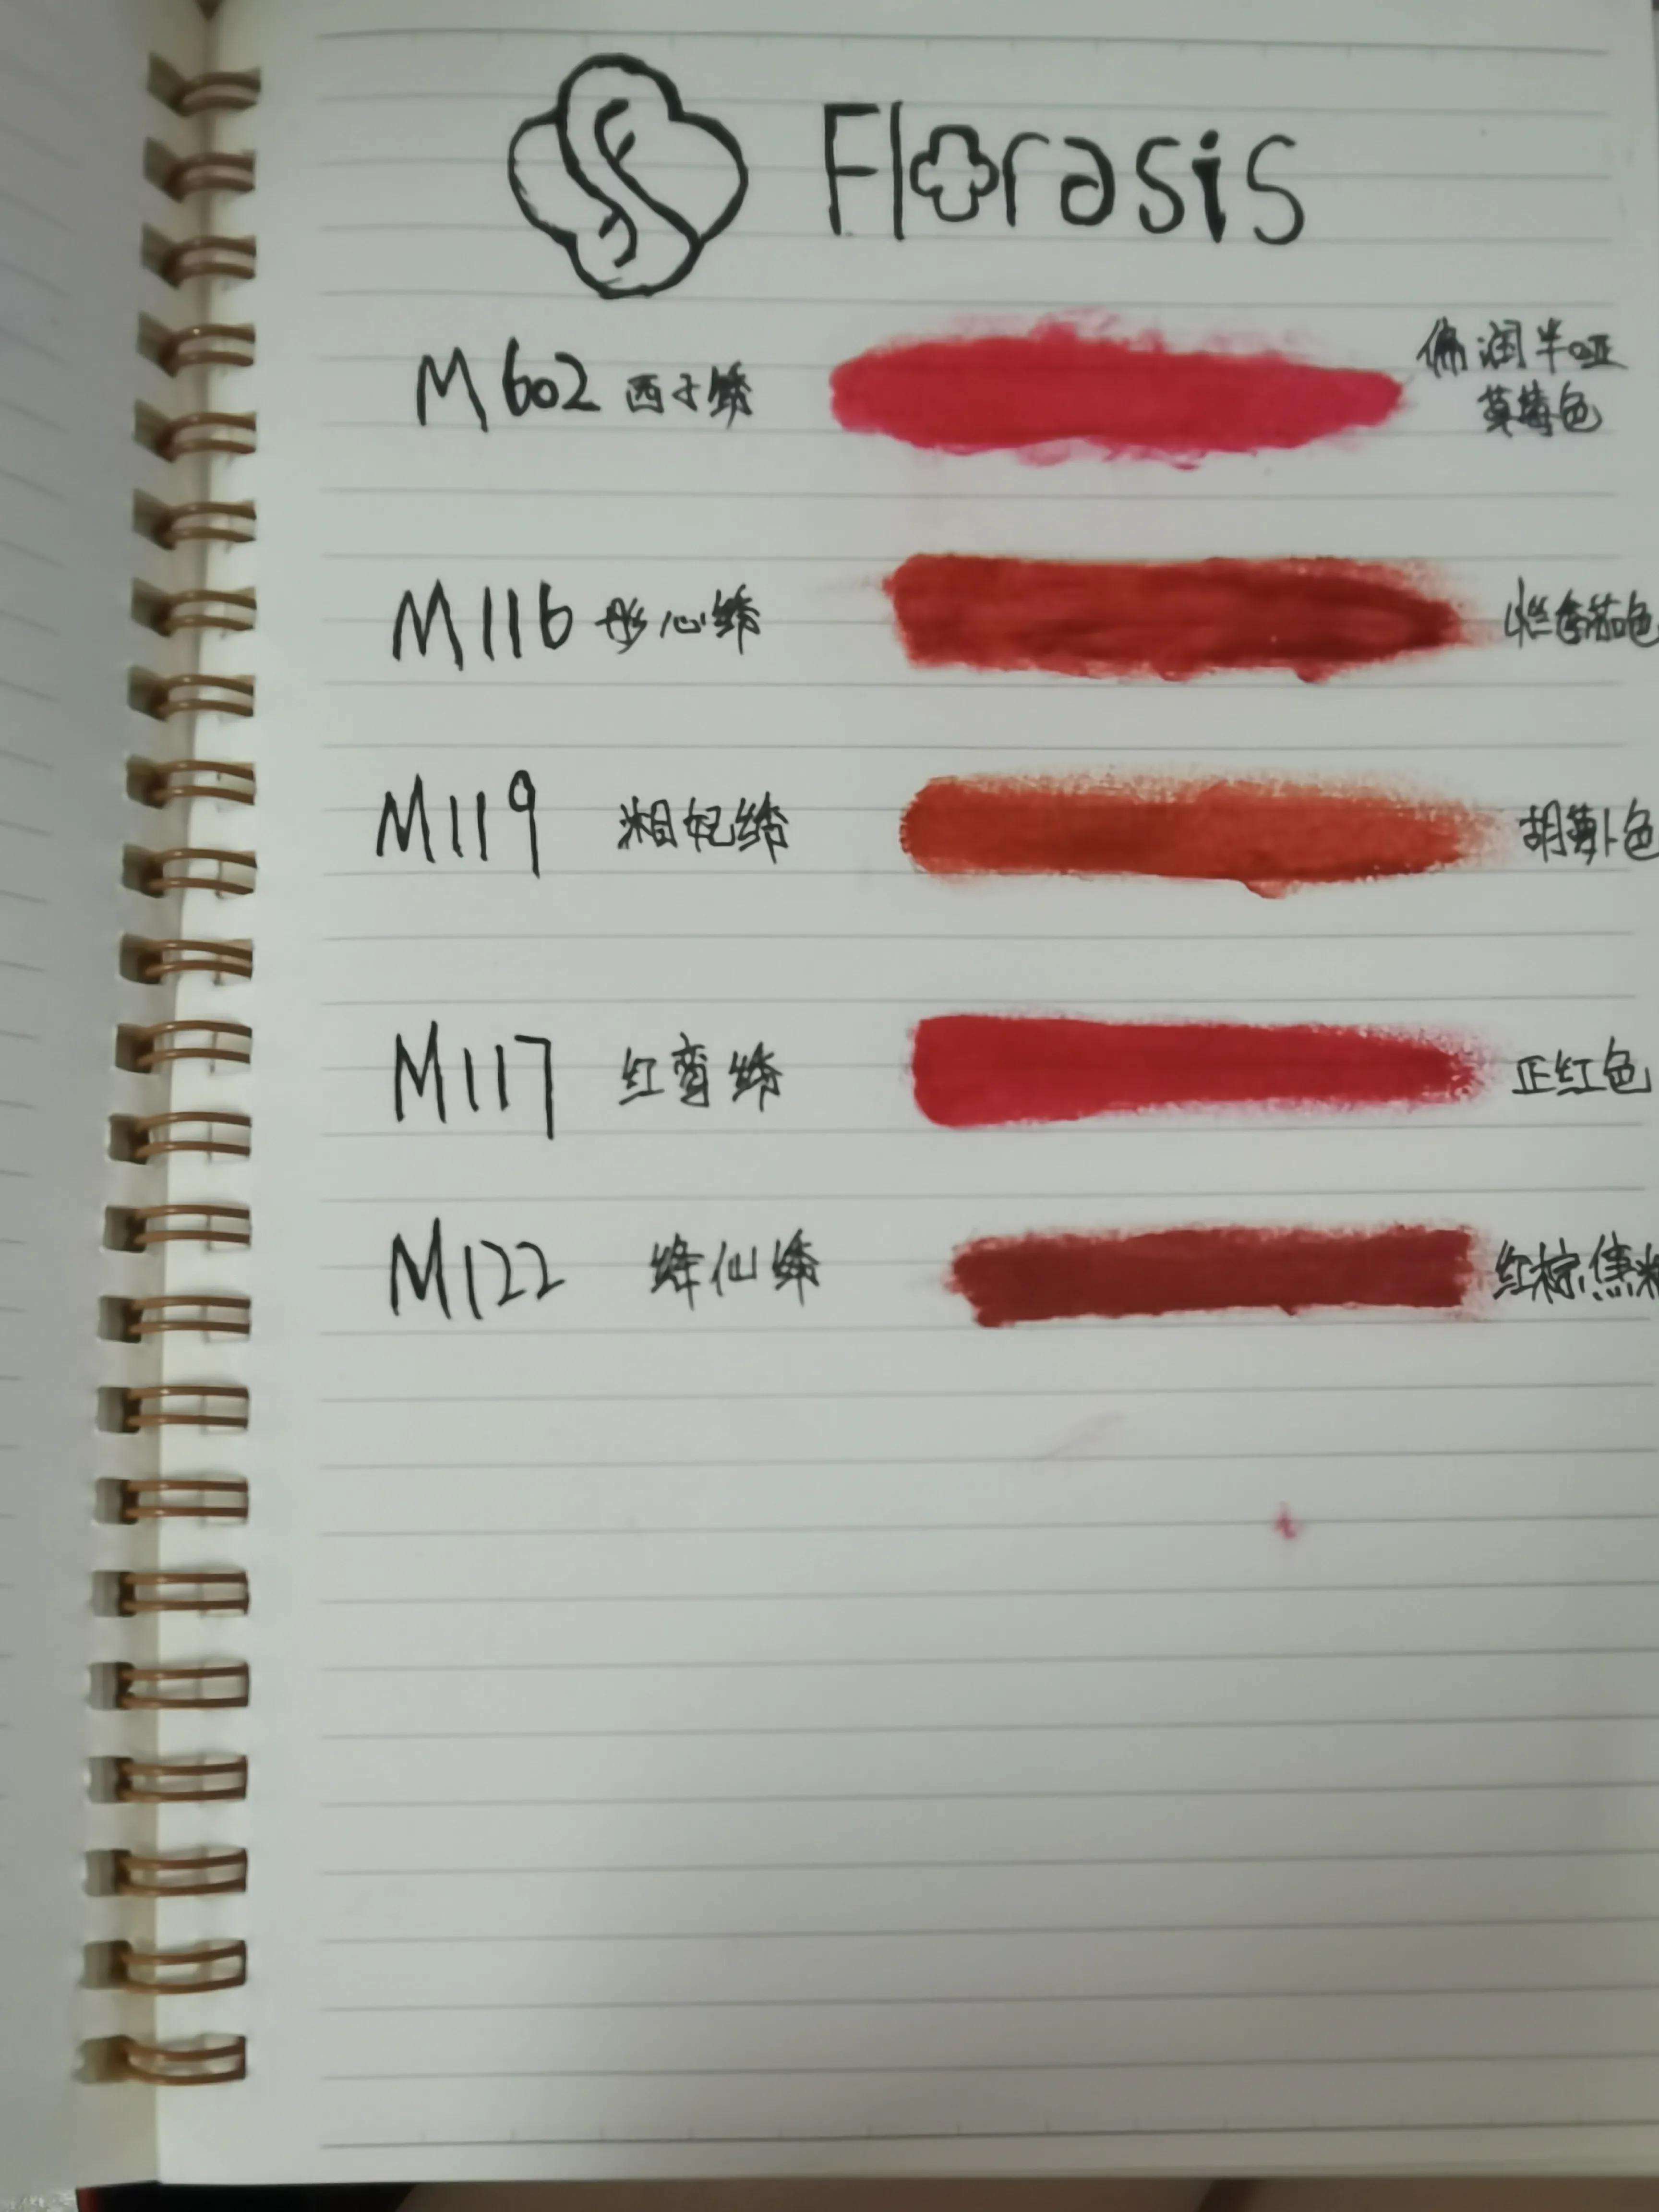 Florasis
M602 西子绣
偏润半哑
草莓色
M116 彤心绣
烂番茄色
M119 湘妃绣
胡萝卜色
M117 红鸾绣
正红色
M122 绛仙绣
红棕焦糖